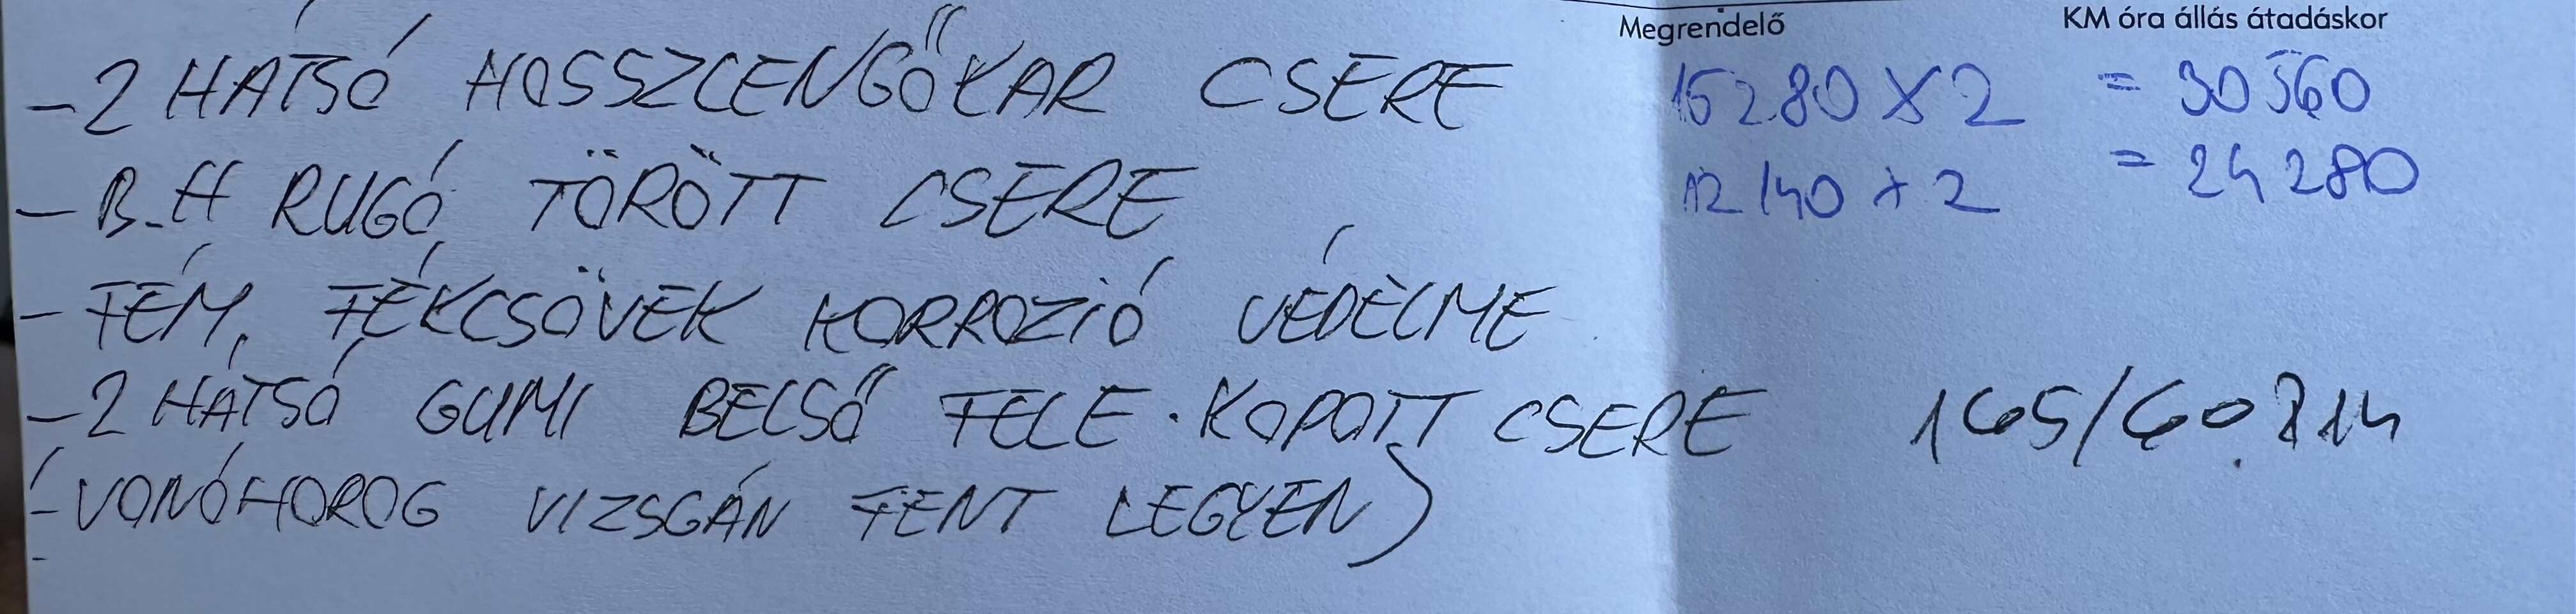 Megrendelő KM óra állás átadáskor
-2 HÁTSÓ HOSSZLENGŐKAR CSERE 15280 X 2 = 30560
- B.H RUGÓ TÖRÖTT CSERE 12140 x 2 = 24280
- FÉM, FÉKCSÖVEK KORROZIÓ VÉDELME
-2 HÁTSÓ GUMI BELSŐ FELE KOPOTT CSERE 165/60.R14
(-VONÓHOROG VIZSGÁN FENT LEGYEN)
-